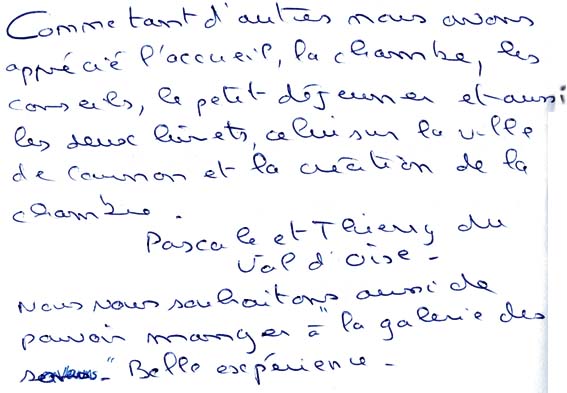 Comme tant d'autres nous avons
apprécié l'accueil, la chambre, les
conseils, le petit déjeuner et aussi
les deux livrets, celui sur la ville
de Cournon et la création de la
chambre.
Pascale et Thierry du
Val d'Oise -
Nous vous souhaitons aussi de
pouvoir manger à "la galerie des
" Belle expérience -